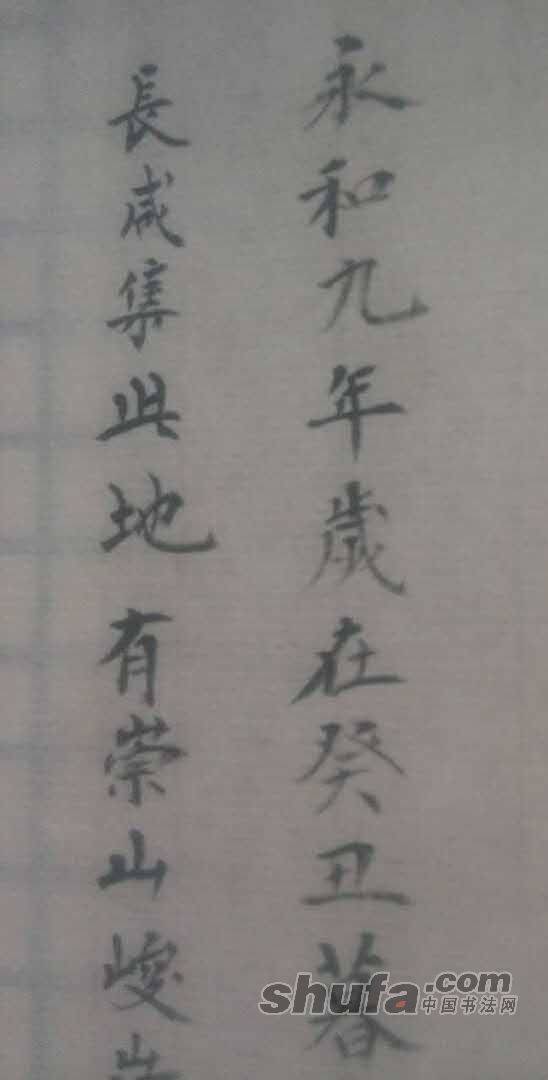 永和九年歲在癸丑暮
長咸集此地有崇山峻
shufa.com
中国书法网